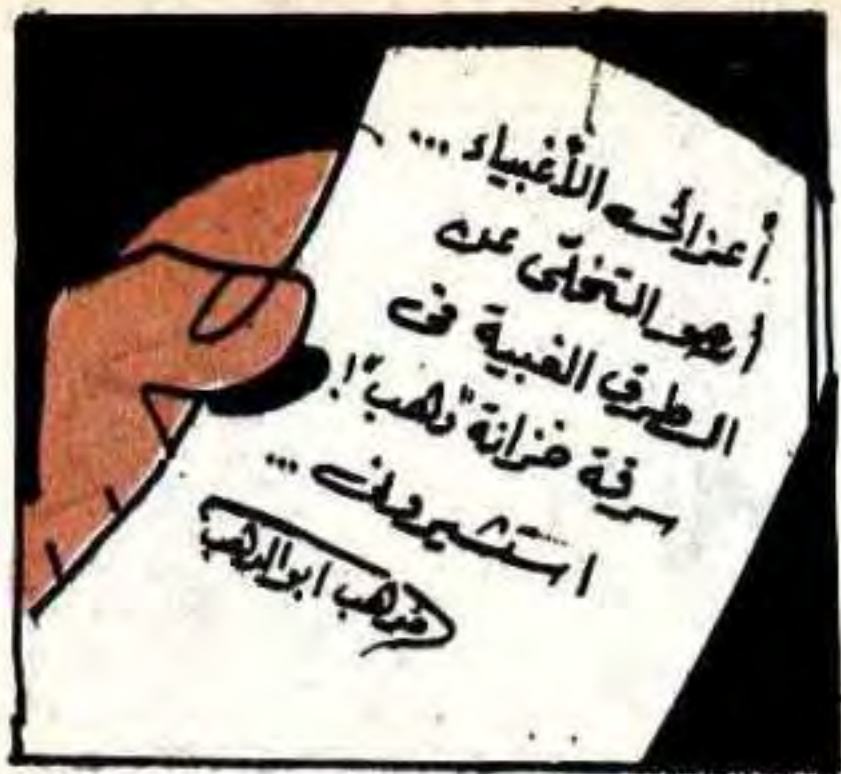 أعزائى الأغبياء ...
أرجو التخلّى عن
الطرق الغبية فى
سرقة خزانة "دهب"!
استشيرونى ...
دهب ابو الدهب